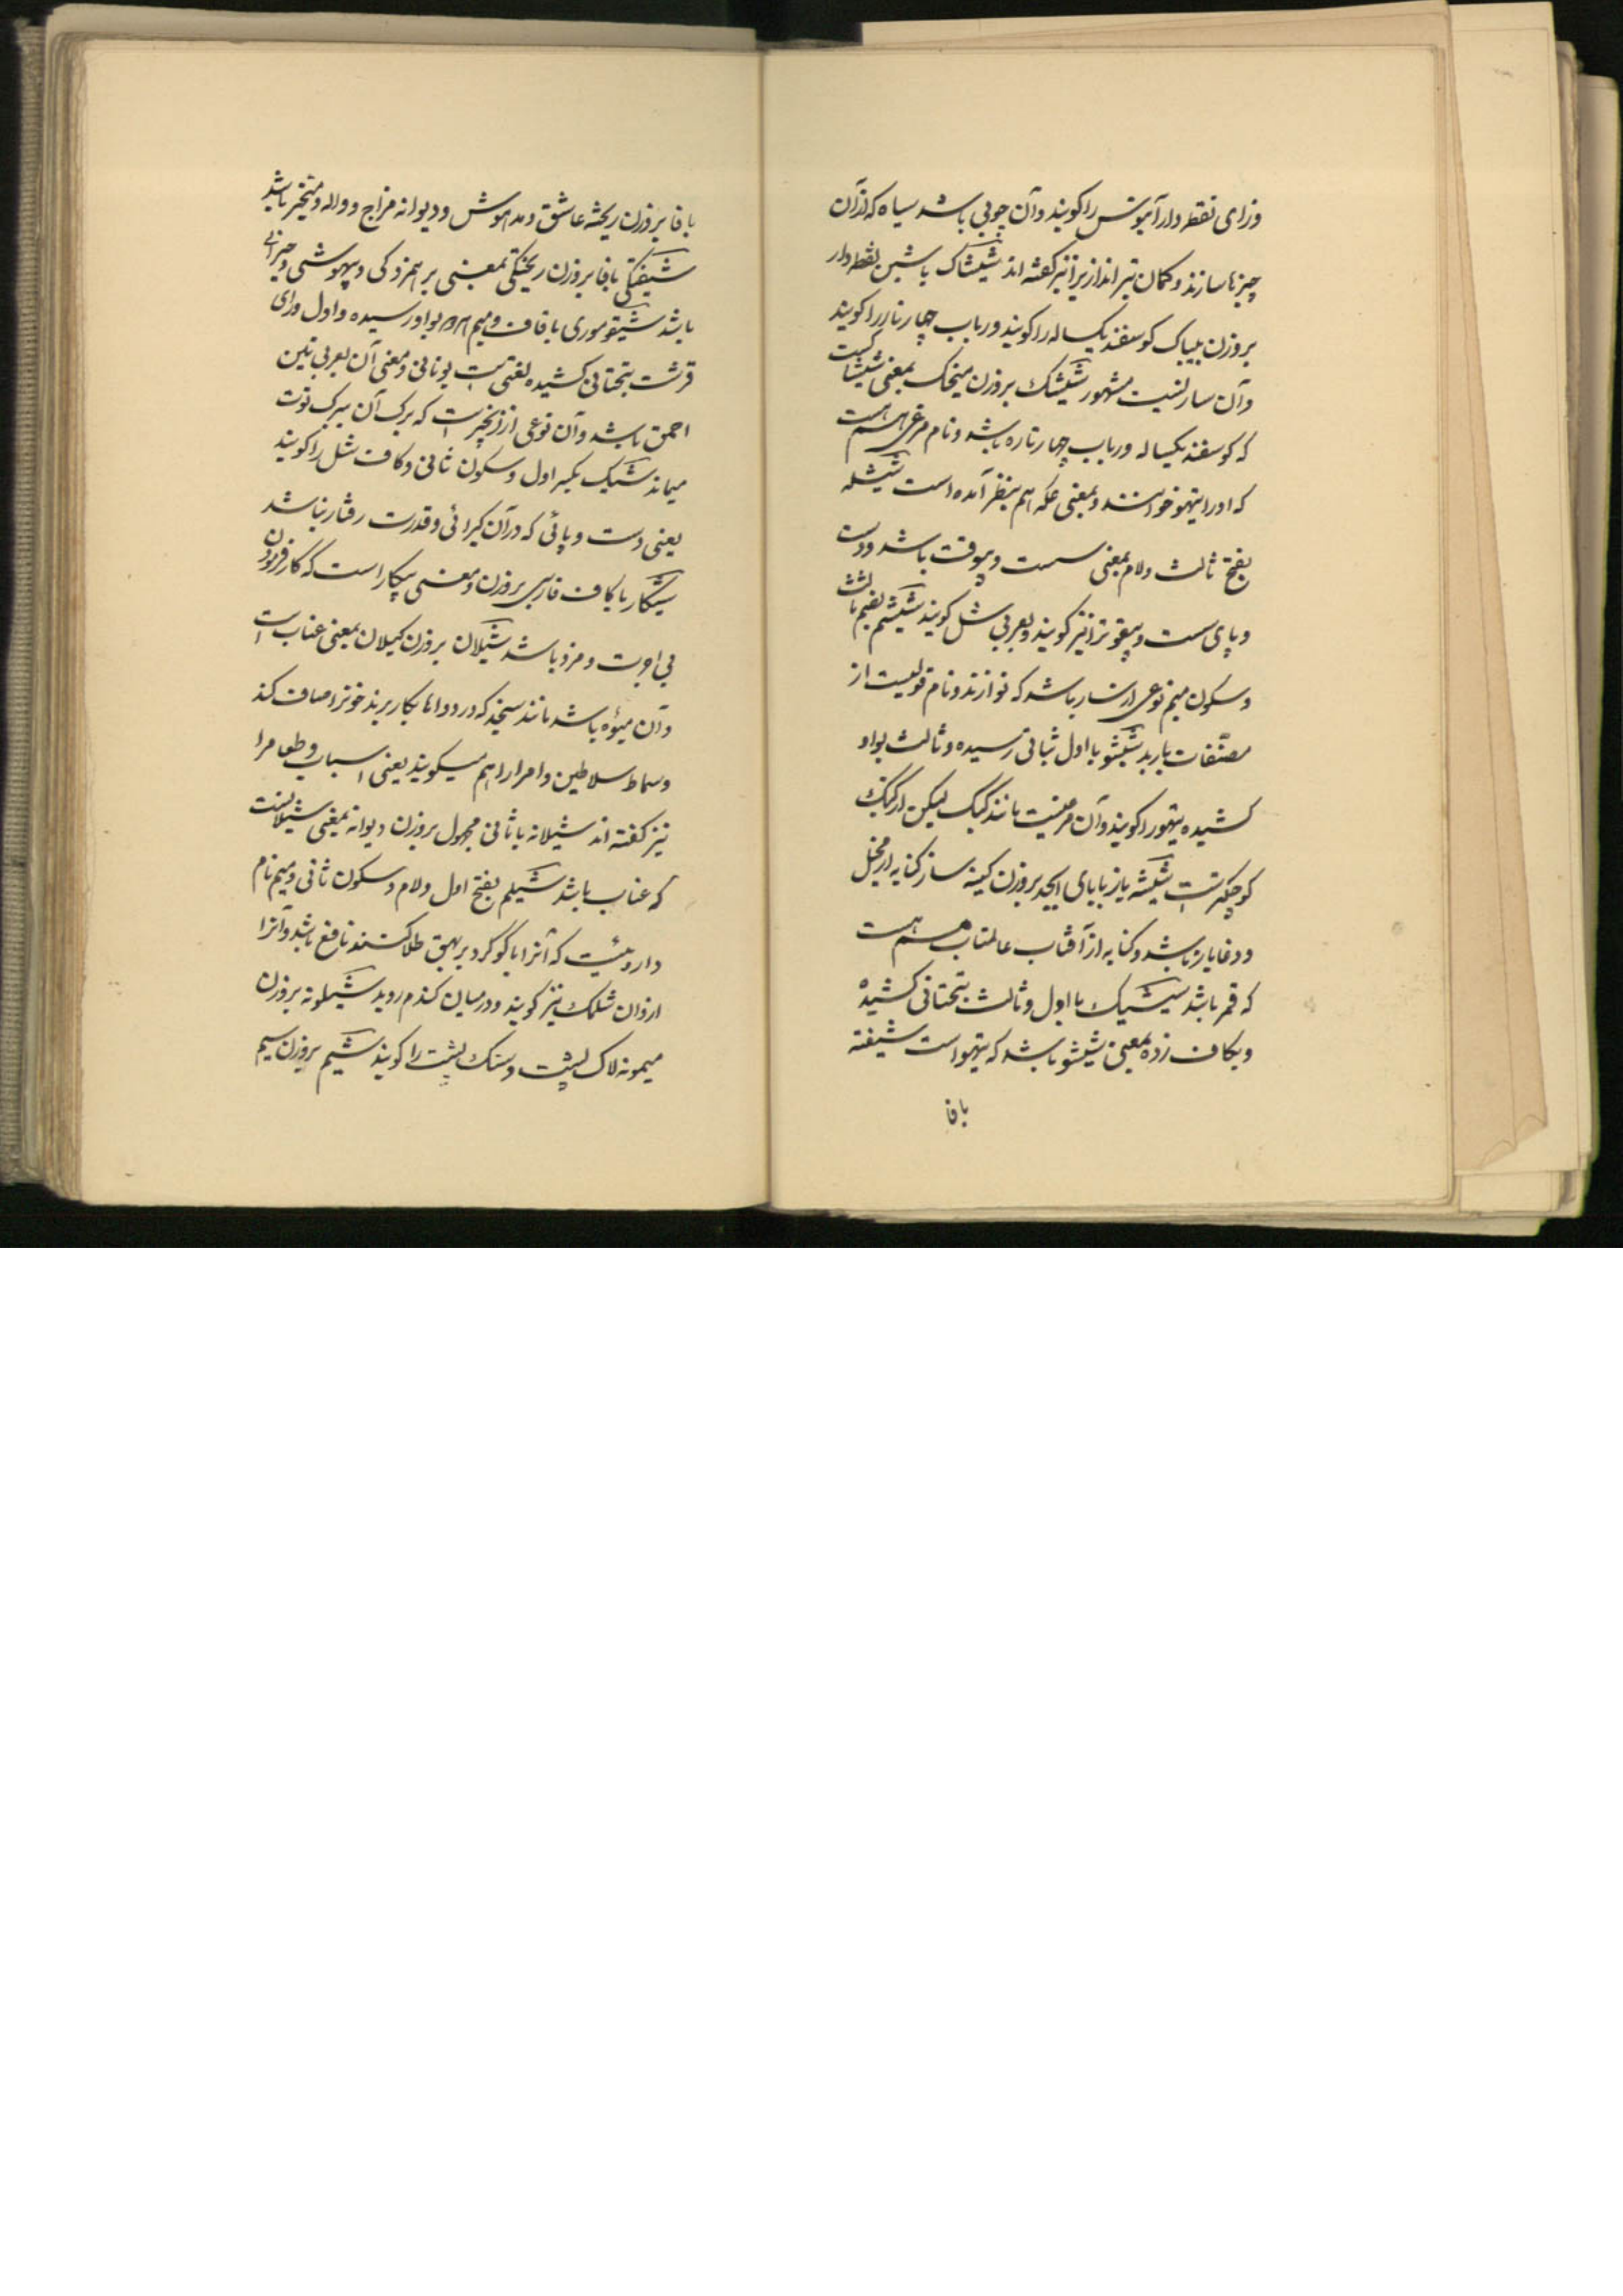 وزای نقطه دار آبنوس را کویند وآن چوبی باشد سیاه که ازآن
چیزها سازند وکمان تیر اندازیرا نیز کفته اند شیشاک باشین نقطه دار
بروزن بیباک کوسفند یکساله را کویند ورباب چهار تار را کویند
وآن سازیست مشهور شیشک بروزن میخک بمعنی شیشاکست
که کوسفند یکساله ورباب چهارتاره باشد ونام مرغی هم هست
که اورا تیهو خوانند وبمعنی عکه هم بنظر آمده است شیشله
بفتح ثالث ولام بمعنی سست وبیوقت باشد ودست
وپای سست وبیقوترا نیز کویند وبعربی شل کویند شیشم بضم ثالث
وسکون میم نوعی از ساز باشد که نوازند ونام قولیست از
مصنّفات باربد شیشو با اول بثانی رسیده وثالث بواو
کشیده تیهورا کویند وآن مرغیست مانند کبک لیکن از کبک
کوچکترست شیشه باز بابای ابجد بروزن کینه ساز کنایه از محیل
ودغاباز باشد وکنایه از آفتاب عالمتاب هم هست
که قمر باشد شیشیک با اول وثالث بتحتانی کشیده
وبکاف زده بمعنی شیشو باشد که تیهو است شیفته
بافا
بافا بروزن ریخته عاشق ومدهوش ودیوانه مزاج وواله ومتحیر باشد
شیفتکی بافا بروزن ریختکی بمعنی برهمزدکی وبیهوشی وحیرانی
باشد شیقوموری باقاف ومیم هردو بواو رسیده واول ورای
قرشت بتحتانی کشیده لغتیست یونانی ومعنی آن بعربی تین
احمق باشد وآن نوعی از انجیرست که برک آن ببرک توت
میماند شیک بکسر اول وسکون ثانی وکاف شل را کویند
یعنی دست وپائی که درآن کیرائی وقدرت رفتار نباشد
شیکار باکاف فارسی بروزن ومعنی بیکار است که کارفرمودن
بی اجرت ومزد باشد شیلان بروزن کیلان بمعنی عناب است
وآن میوه باشد مانند سنجد که در دواها بکار برند خونرا صاف کند
وسماط سلاطین وامرارا هم میکویند یعنی اسباب وطعامرا
نیز کفته اند شیلانه باثانی مجهول بروزن دیوانه بمعنی شیلانست
که عناب باشد شیلم بفتح اول ولام وسکون ثانی ومیم نام
داروئیست که آنرا با کوکرد بربهق طلا کنند نافع باشد وآنرا
ازوان شلمک نیز کویند ودرمیان کندم روید شیلونه بروزن
میمونه لاک پشت وسنک پشت را کویند شیم بروزن سیم